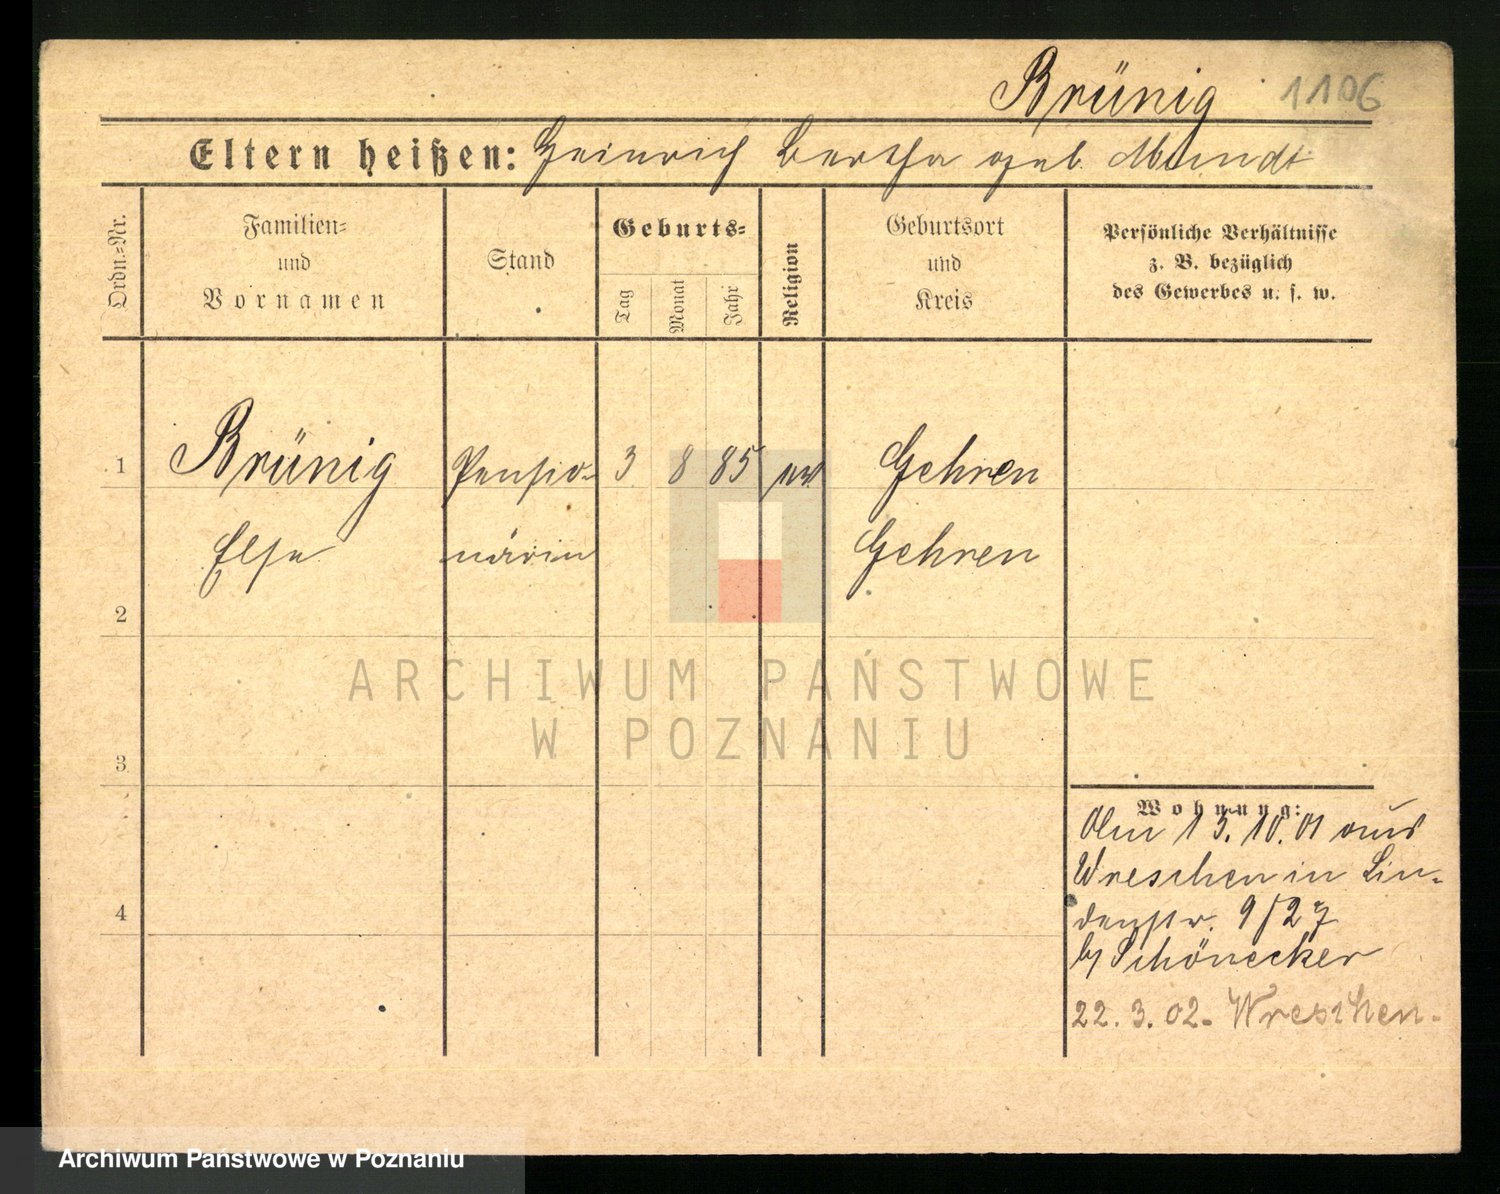 Brünig 1106
Eltern heißen: Heinrich Bertha geb. Mundt
Ordn.-Nr.
Familien-
und
Vornamen
Stand
Geburts-
Tag
Monat
Jahr
Religion
Geburtsort
und
Kreis
Persönliche Verhältnisse
z. B. bezüglich
des Gewerbes u. s. w.
1 Brünig Pensio- 3 8 85 ev Gehren
Else närin Gehren
2
ARCHIWUM PAŃSTWOWE
W POZNANIU
3
Wohnung:
Am 13.10.01 aus
Wreschen in Lin-
denstr. 9/27
b/ Schönecker
4
22.3.02- Wreschen-
Archiwum Państwowe w Poznaniu